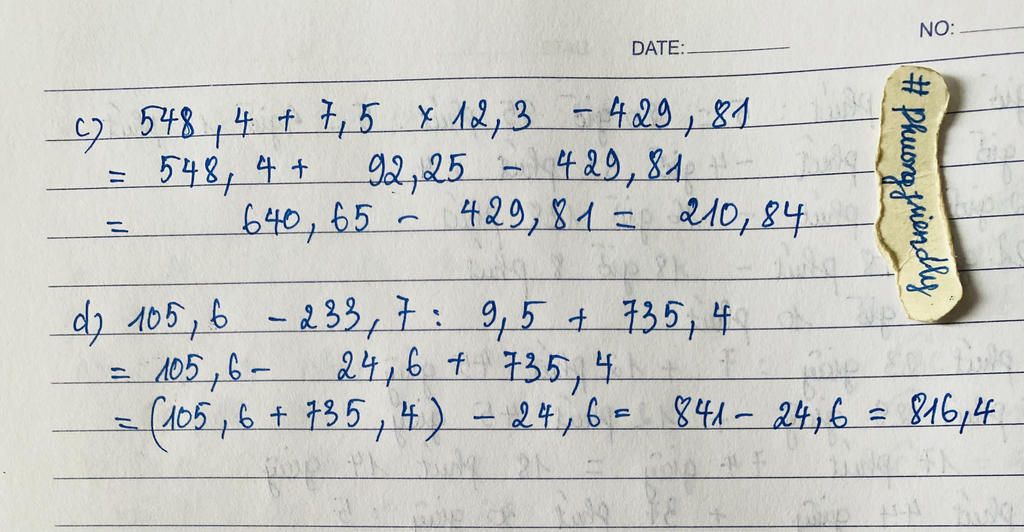 NO:
DATE:
#phuongfriendly
c) 548,4 + 7,5 × 12,3 - 429,81
= 548,4 + 92,25 - 429,81
= 640,65 - 429,81 = 210,84
d) 105,6 - 233,7 : 9,5 + 735,4
= 105,6 - 24,6 + 735,4
= (105,6 + 735,4) - 24,6 = 841 - 24,6 = 816,4